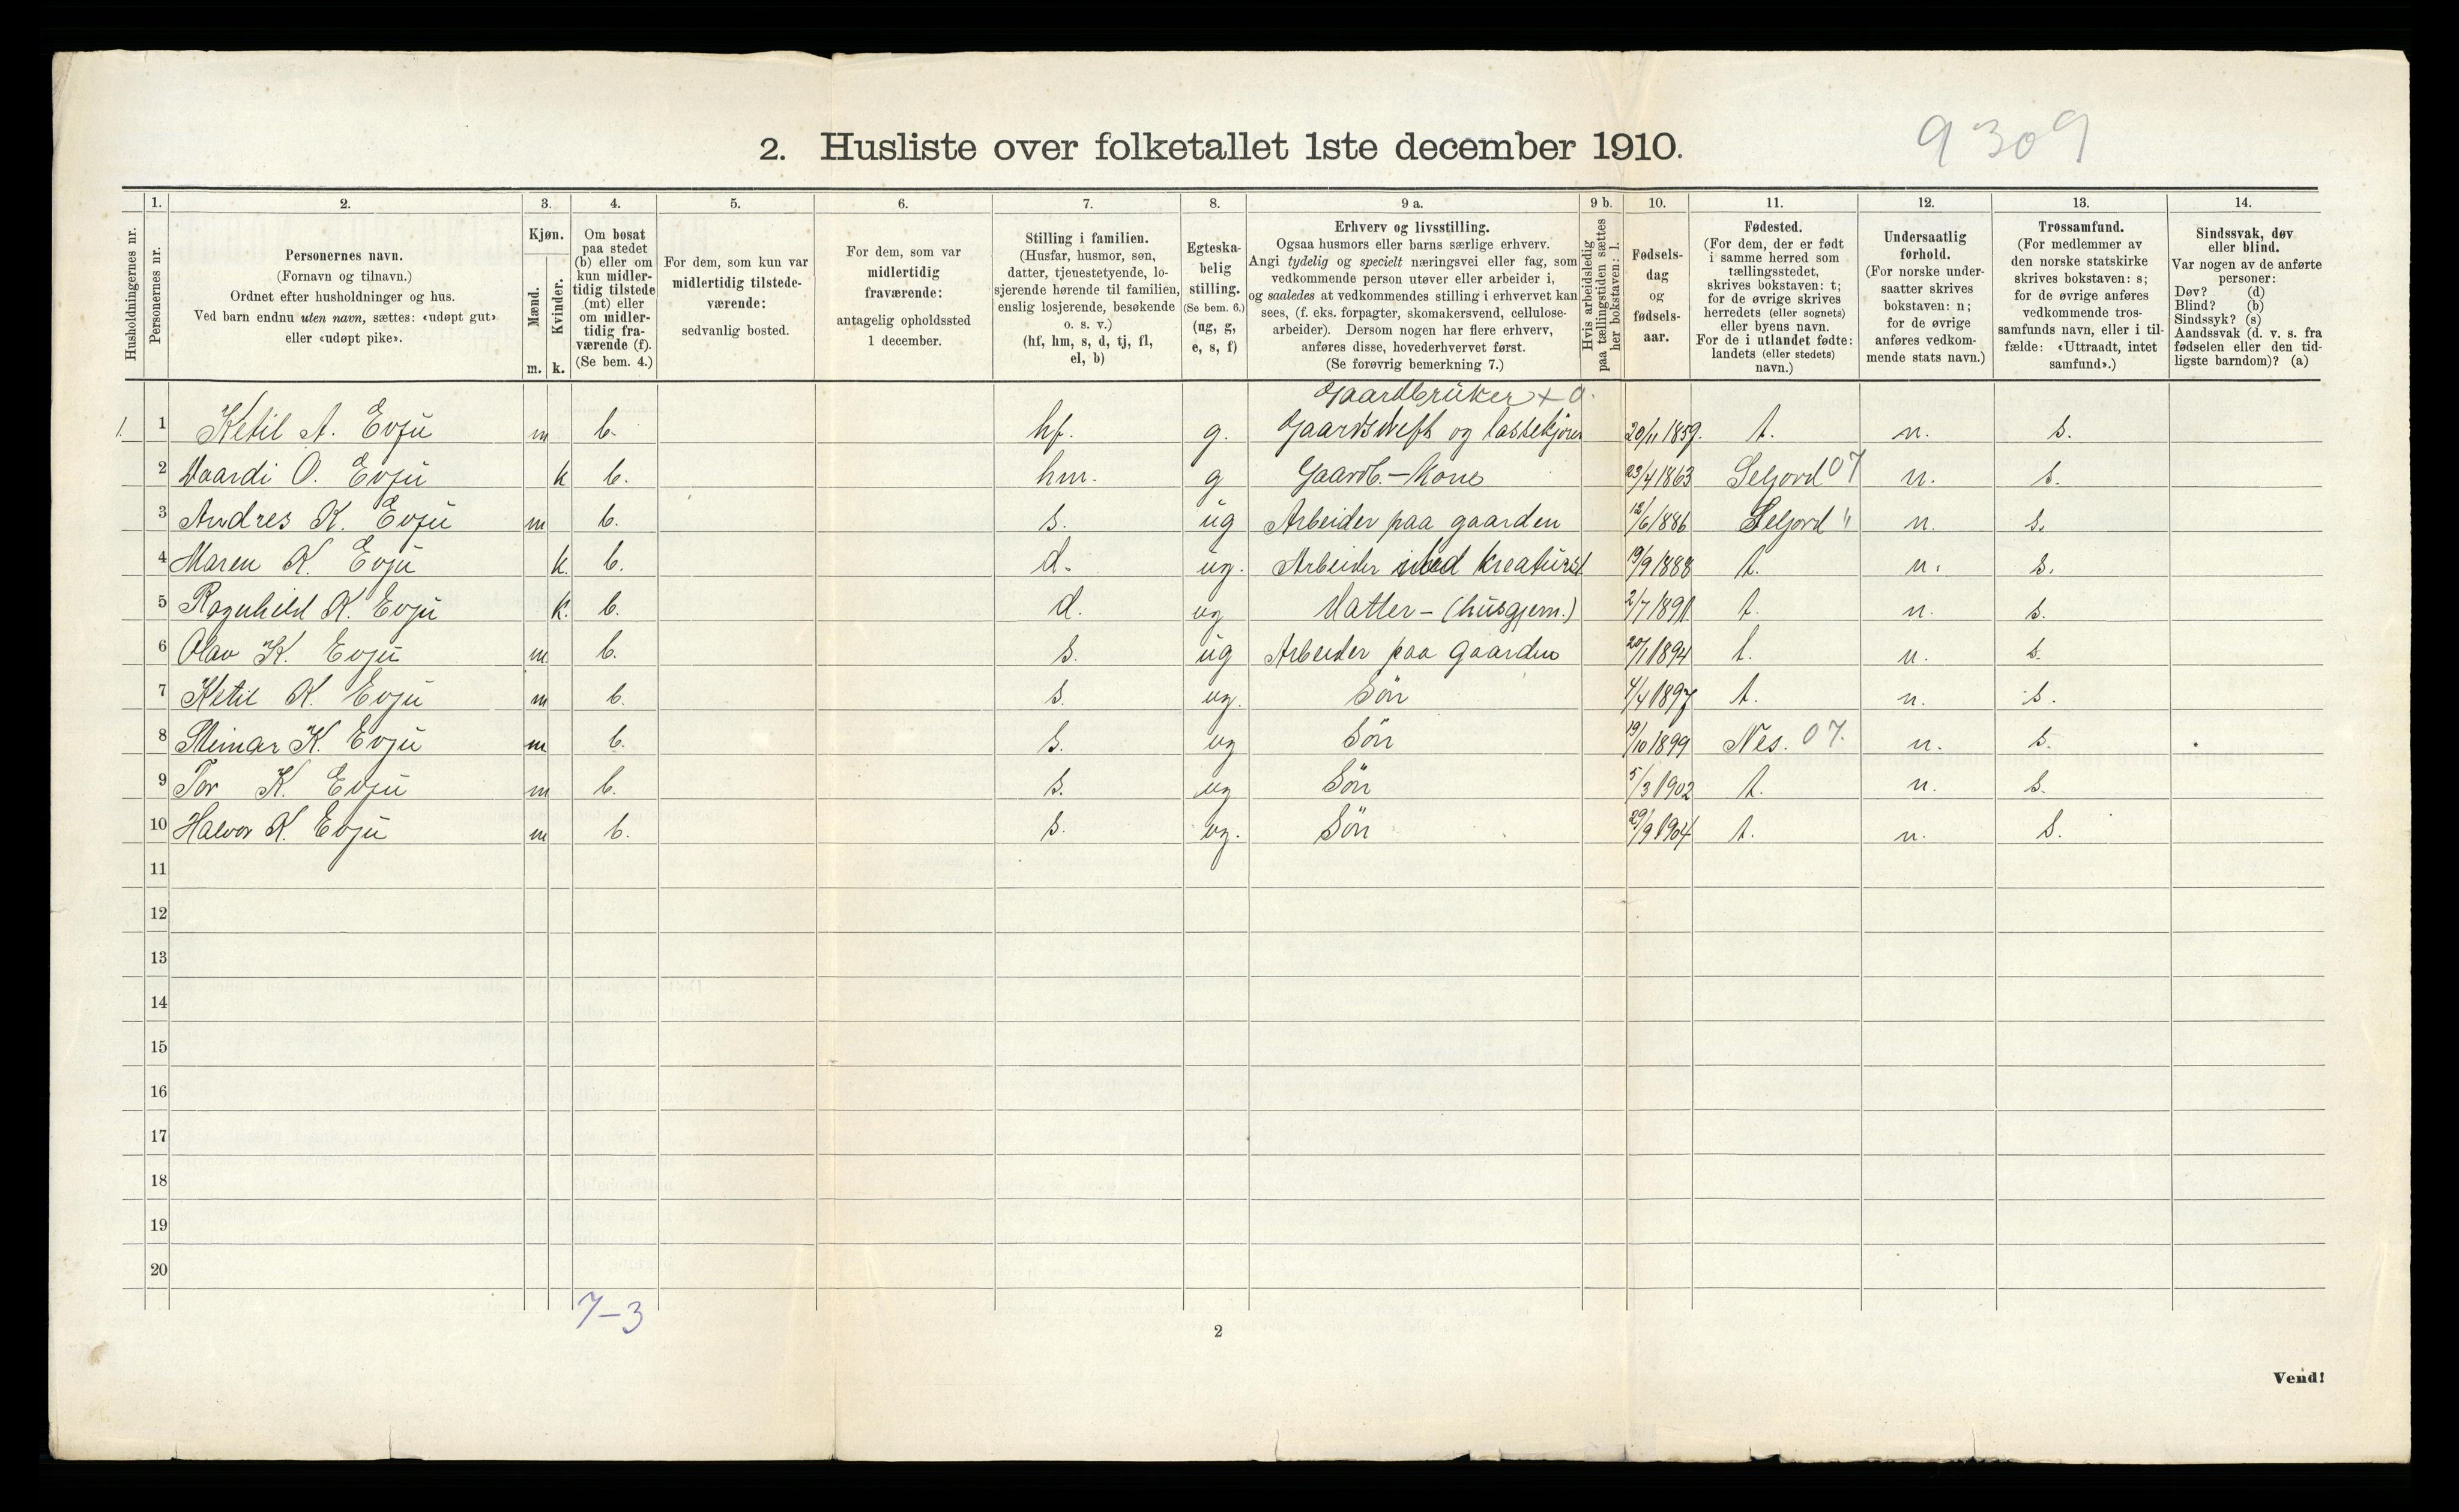 2. Husliste over folketallet 1ste december 1910.
9309
Husholdningernes nr.
1. 2. 3. 4. 5. 6. 7. 8. 9 a. 9 b. 10. 11. 12. 13. 14.
Personernes nr.
Personernes navn.
(Fornavn og tilnavn.)
Ordnet efter husholdninger og hus.
Ved barn endnu uten navn, sættes: «udøpt gut»
eller «udøpt pike».
Kjøn.
Mænd.
Kvinder.
m. k.
Om bosat
paa stedet
(b) eller om
kun midler-
tidig tilstede
(mt) eller
om midler-
tidig fra-
værende (f).
(Se bem. 4.)
For dem, som kun var
midlertidig tilstede-
værende:
sedvanlig bosted.
For dem, som var
midlertidig
fraværende:
antagelig opholdssted
1 december.
Stilling i familien.
(Husfar, husmor, søn,
datter, tjenestetyende, lo-
sjerende hørende til familien,
enslig losjerende, besøkende
o. s. v.)
(hf, hm, s, d, tj, fl,
el, b)
Egteska-
belig
stilling.
(Se bem. 6.)
(ug, g,
e, s, f)
Erhverv og livsstilling.
Ogsaa husmors eller barns særlige erhverv.
Angi tydelig og specielt næringsvei eller fag, som
vedkommende person utøver eller arbeider i,
og saaledes at vedkommendes stilling i erhvervet kan
sees, (f. eks. forpagter, skomakersvend, cellulose-
arbeider). Dersom nogen har flere erhverv,
anføres disse, hovederhvervet først.
(Se forøvrig bemerkning 7.)
Hvis arbeidsledig
paa tællingstiden sættes
her bokstaven: l.
Fødsels-
dag
og
fødsels-
aar.
Fødested.
(For dem, der er født
i samme herred som
tællingsstedet,
skrives bokstaven: t;
for de øvrige skrives
herredets (eller sognets)
eller byens navn.
For de i utlandet fødte:
landets (eller stedets)
navn.)
Undersaatlig
forhold.
(For norske under-
saatter skrives
bokstaven: n;
for de øvrige
anføres vedkom-
mende stats navn.)
Trossamfund.
(For medlemmer av
den norske statskirke
skrives bokstaven: s;
for de øvrige anføres
vedkommende tros-
samfunds navn, eller i til-
fælde: «Uttraadt, intet
samfund».)
Sindssvak, døv
eller blind.
Var nogen av de anførte
personer:
Døv? (d)
Blind? (b)
Sindssyk? (s)
Aandssvak (d. v. s. fra
fødselen eller den tid-
ligste barndom)? (a)
Gaardbruker + o.
1. 1 Ketil A. Evju m b. hf. g. og lassekjører 20/11 1859. t. n. s.
2 O. Evju k b. hm. g Gaardb.-Kone 23/4 1863 Seljord 07 n. s.
3 Andres K. Evju m b. s. ug Arbeider paa gaarden 12/6 1886 Seljord " n. s.
4 Maren K. Evju k. b. d. ug. Arbeider med 19/9 1888 t. n. s.
5 Ragnhild K. Evju k. b. d. ug Datter - (husgjern.) 2/7 1891. t. n. s.
6 Olav K. Evju m. b. s. ug Arbeider paa Gaarden 20/1 1894 t. n. s.
7 Ketil K. Evju m b. s. ug. Sön 4/4 1897 t. n. s.
8 Steinar K. Evju m b. s. ug Sön 19/10 1899 Nes. 07. n. s.
9 Tor K. Evju m b. s. ug Sön 5/3 1902 t. n. s.
10 Halvor K. Evju m b. s. ug. Sön 29/9 1904 t. n. s.
11
12
13
14
15
16
17
18
19
20
7-3
2
Vend!